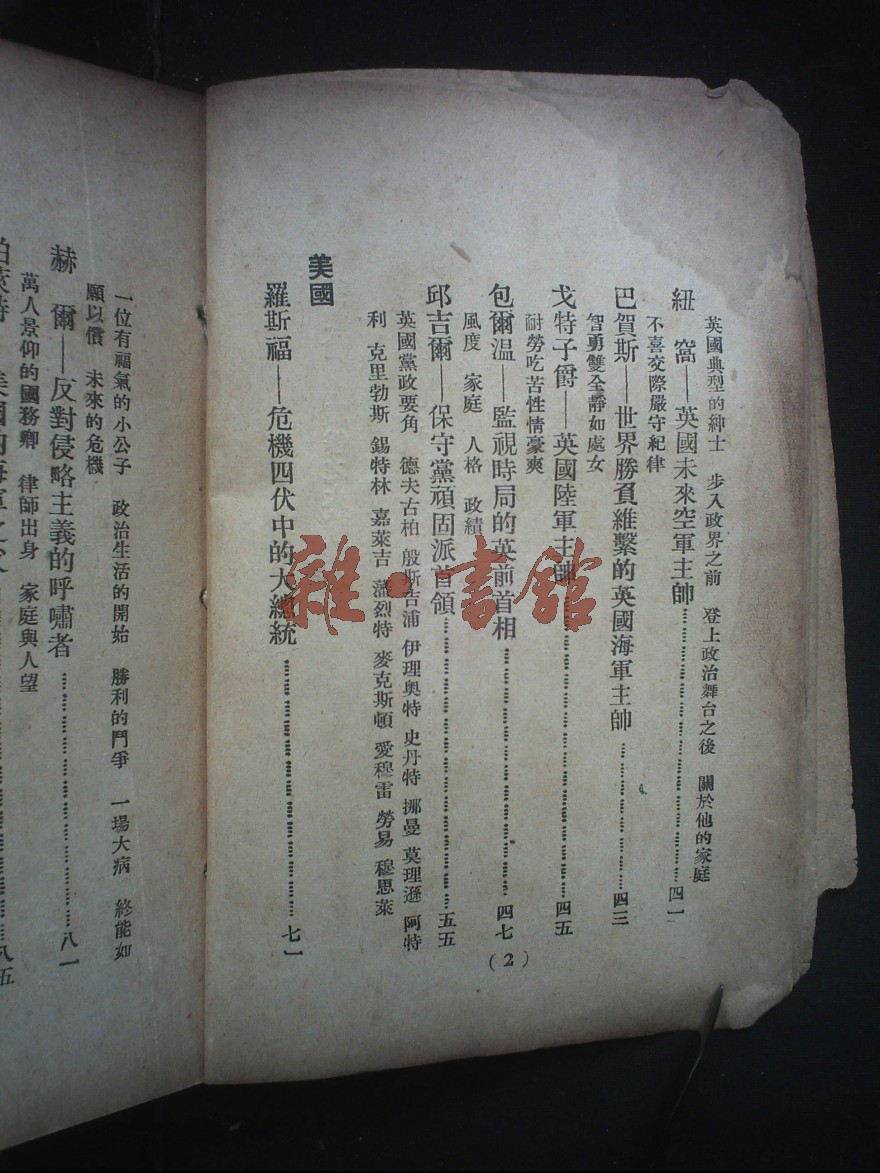 英國典型的紳士　步入政界之前　登上政治舞台之後　關於他的家庭
紐　窩——英國未來空軍主帥……四一
不喜交際嚴守紀律
巴賀斯——世界勝負維繫的英國海軍主帥……四三
智勇雙全靜如處女
戈特子爵——英國陸軍主帥……四五
耐勞吃苦性情豪爽
包爾溫——監視時局的英前首相……四七
風度　家庭　人格　政績
邱吉爾——保守黨頑固派首領……五五
英國黨政要角　德夫古柏　殷斯吉浦　伊理奧特　史丹特　挪曼　莫理遜　阿特
利　克里勃斯　錫特林　嘉萊吉　潘烈特　麥克斯頓　愛穆雷　勞易　穆思萊
美國
羅斯福——危機四伏中的大總統……七一
(2)
一位有福氣的小公子　政治生活的開始　勝利的鬥爭　一場大病　終能如
願以償　未來的危機
赫　爾——反對侵略主義的呼嘯者……八一
萬人景仰的國務卿　律師出身　家庭與人望
美國的海軍……八五
雜·書館